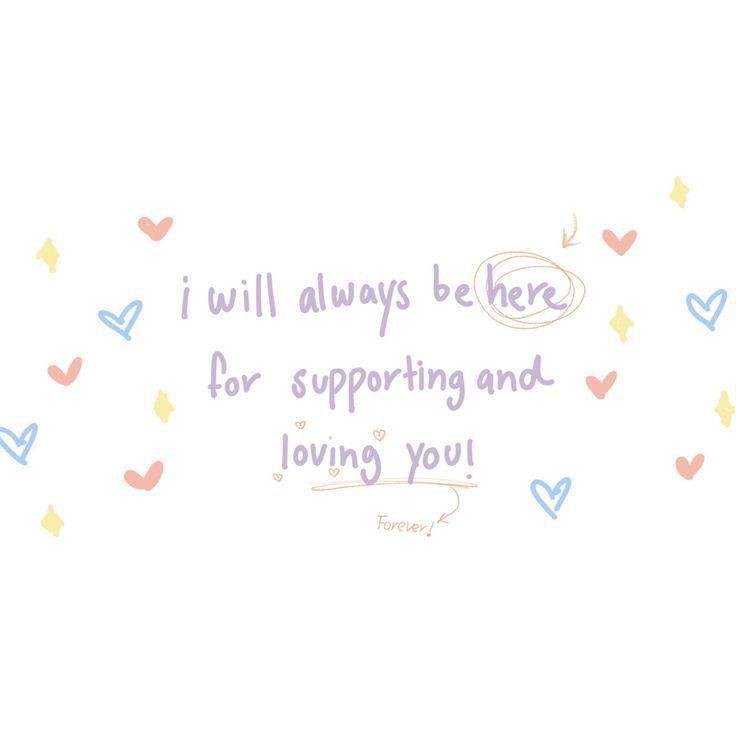 i will always be here
for supporting and
loving you!
Forever!